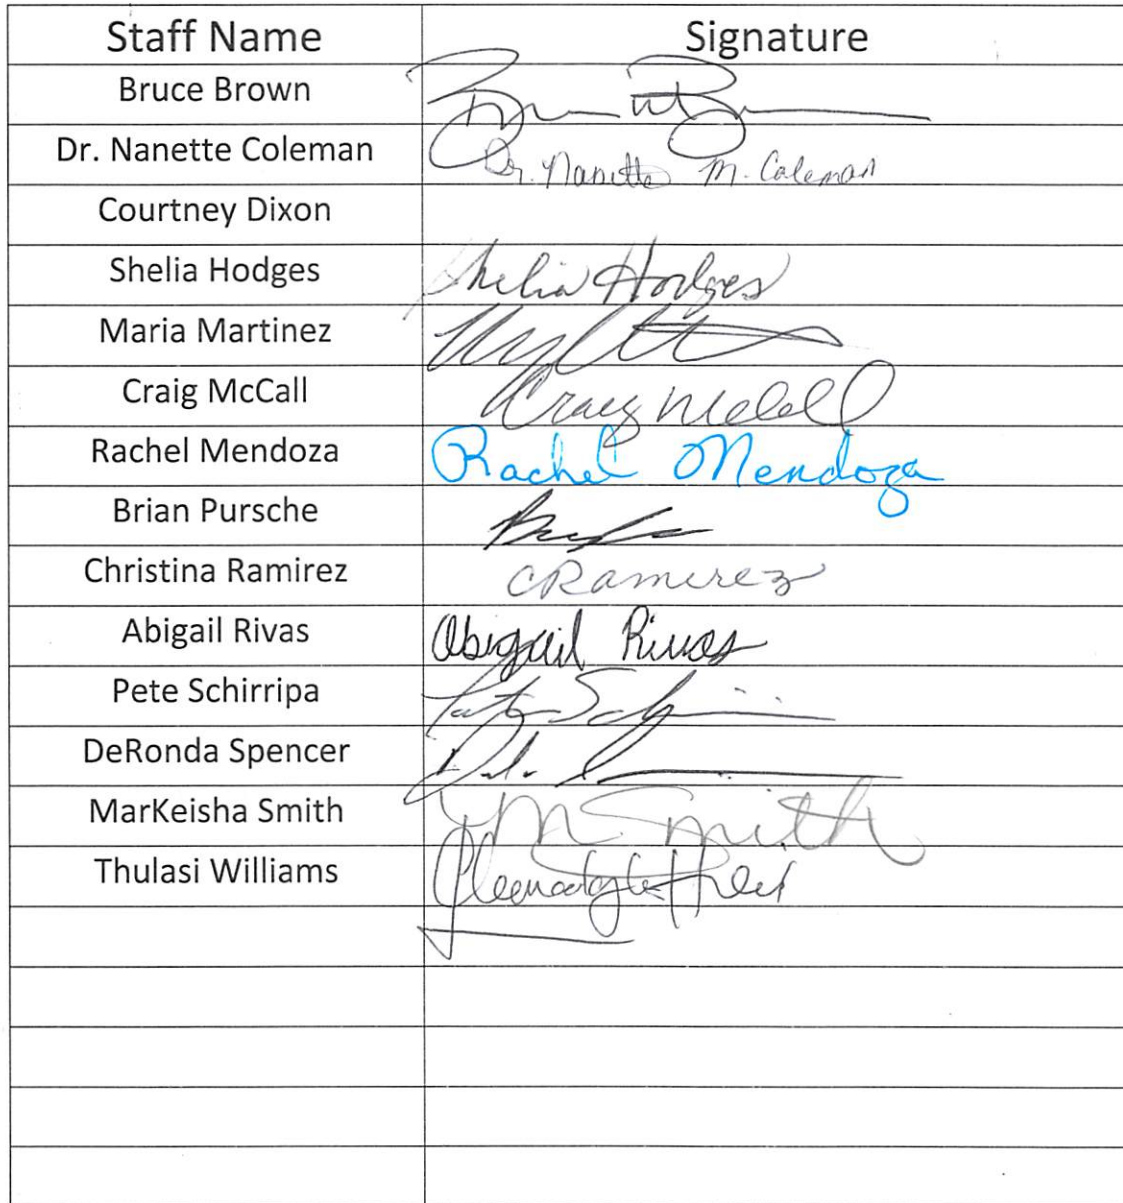 Staff Name Signature
Bruce Brown
Dr. Nanette Coleman Dr. Nanette M. Coleman
Courtney Dixon
Shelia Hodges Shelia Hodges
Maria Martinez
Craig McCall Craig McCall
Rachel Mendoza Rachel Mendoza
Brian Pursche
Christina Ramirez CRamirez
Abigail Rivas Abigail Rivas
Pete Schirripa
DeRonda Spencer
MarKeisha Smith M Smith
Thulasi Williams